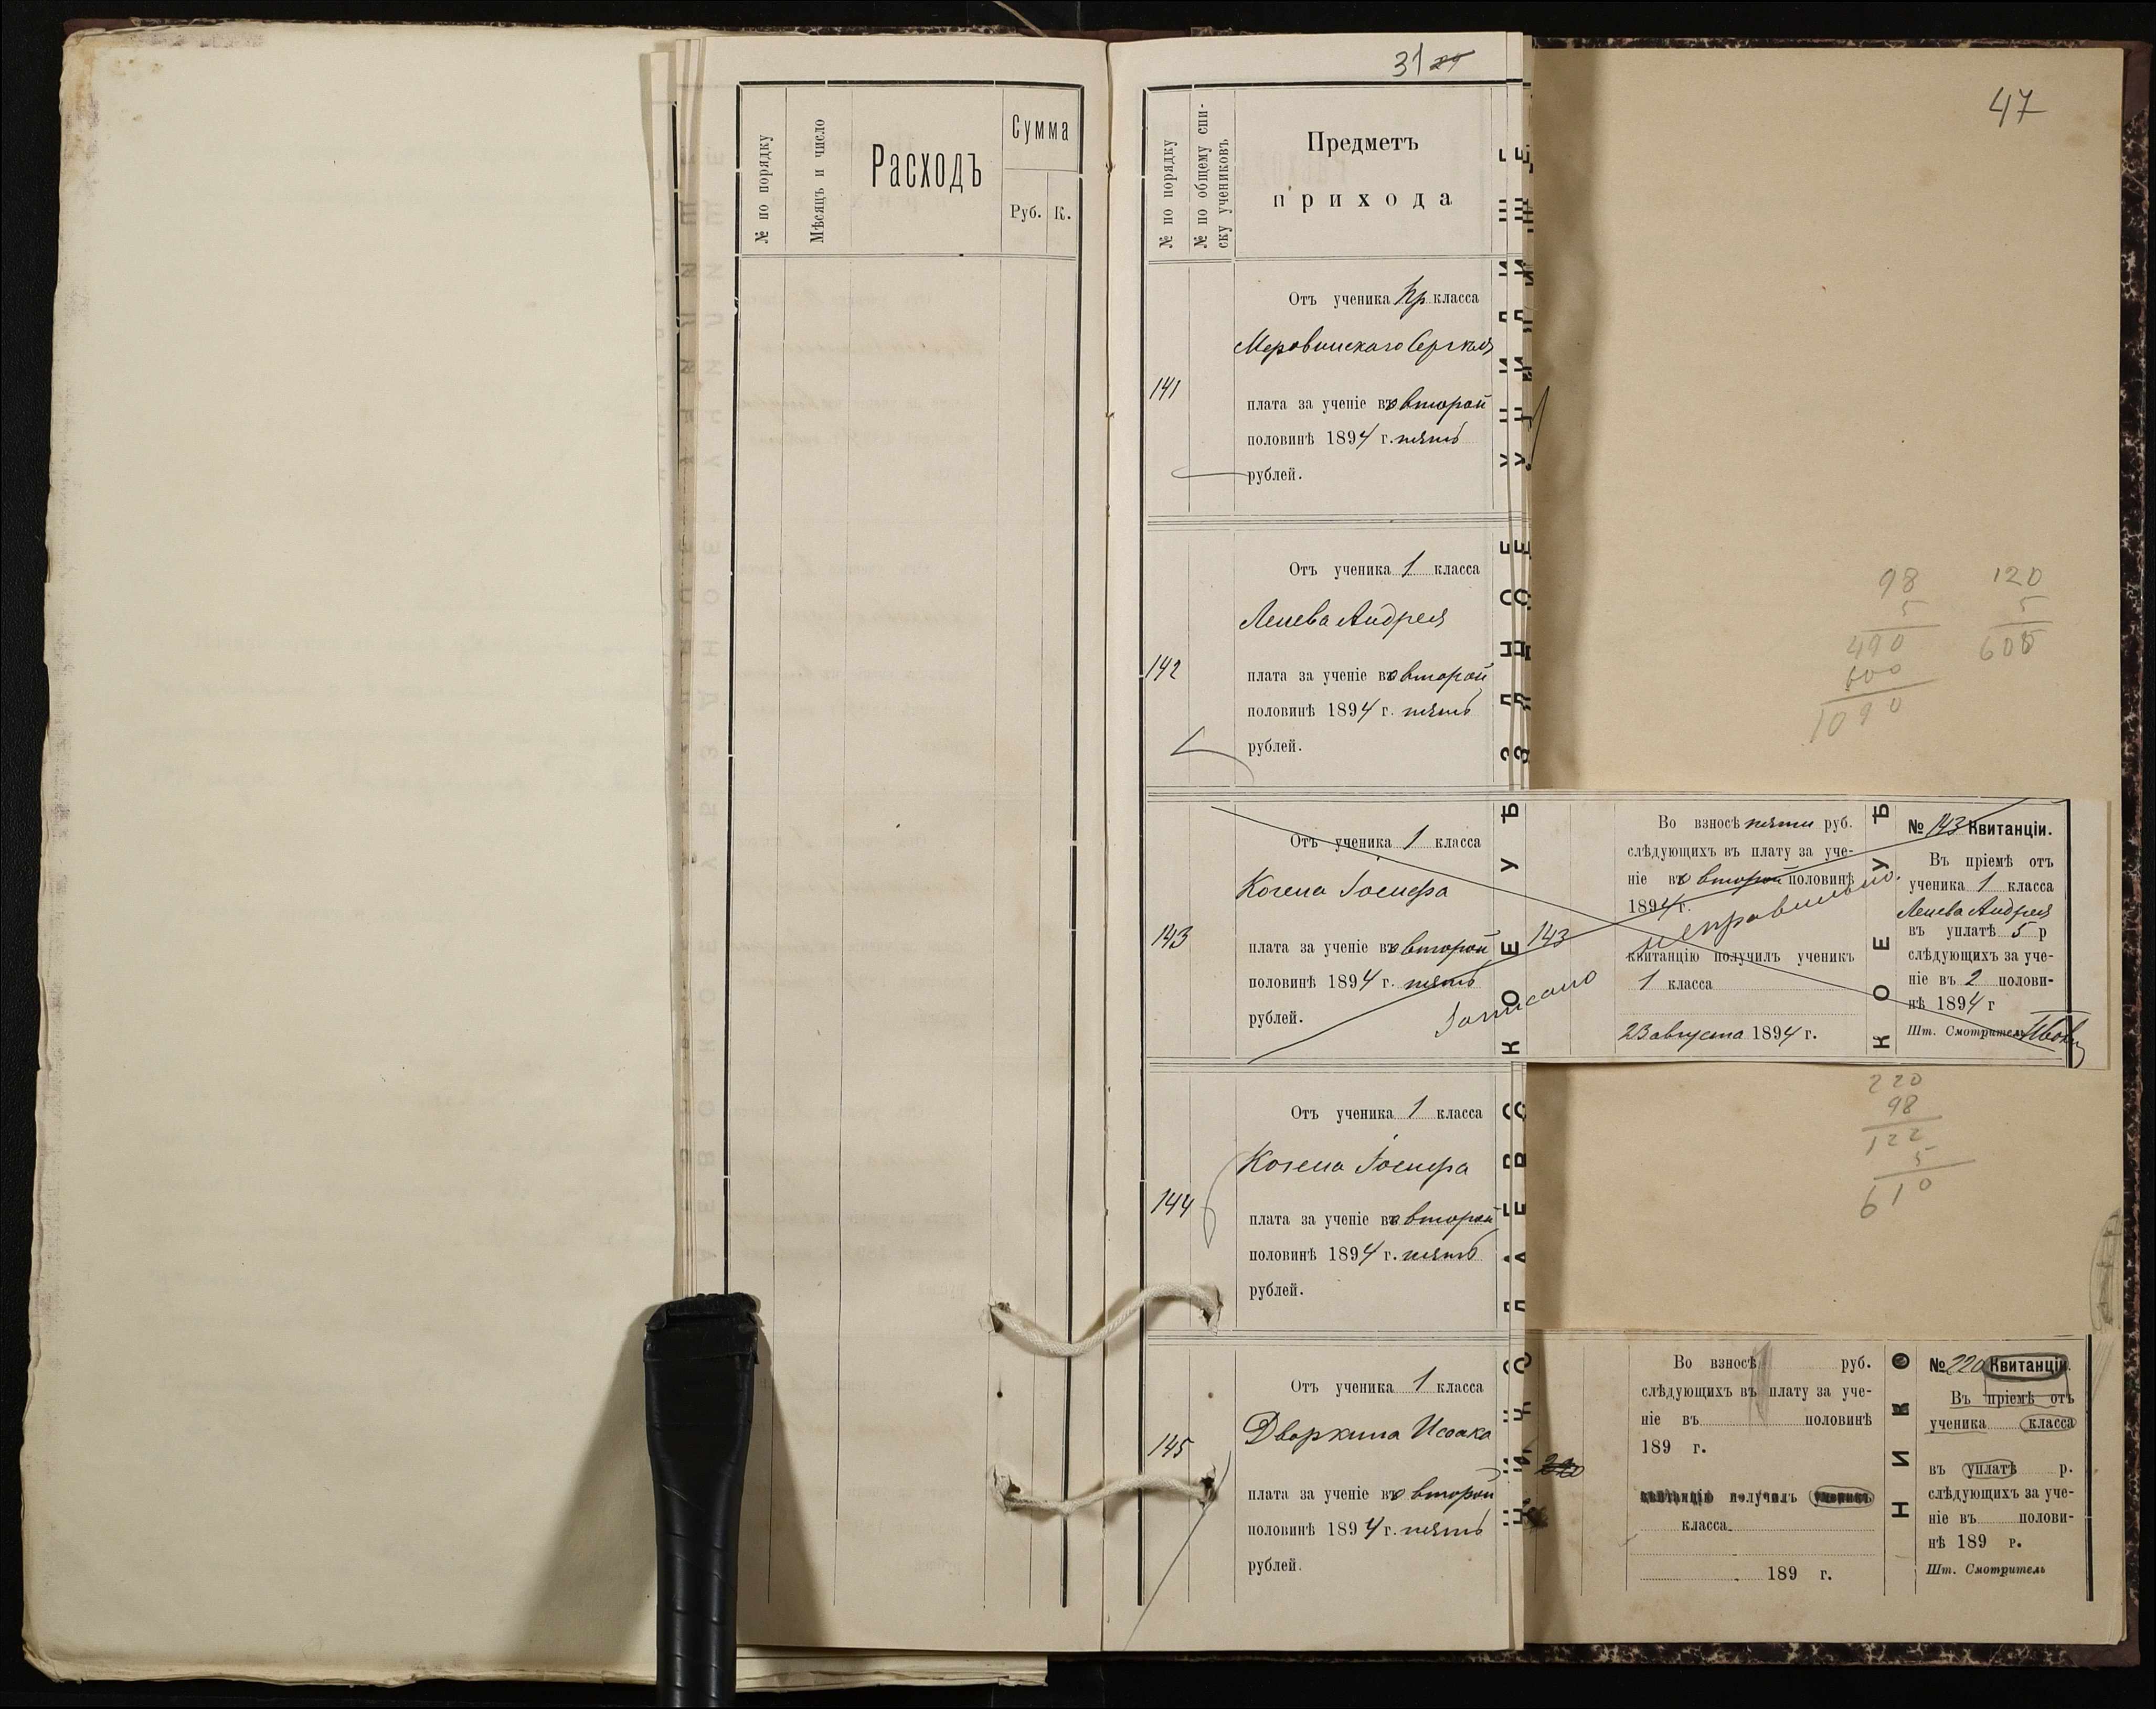 31 29
47
№ по порядку
Мѣсяцъ и число
Расходъ
Сумма
Руб. К.
№ по порядку
№ по общему спи-
ску учениковъ
Предметъ
прихода
141
Отъ ученика Пр класса
Меровинскаго Сергѣя
плата за ученіе въ второй
половинѣ 1894 г. пять
рублей.
142
Отъ ученика 1 класса
Ленева Андрея
плата за ученіе въ второй
половинѣ 1894 г. пять
рублей.
143
Отъ ученика 1 класса
Когена Іосифа
плата за ученіе въ второй
половинѣ 1894 г. пять
рублей.
Записано
143
Во взносѣ пяти руб.
слѣдующихъ въ плату за уче-
ніе въ второй половинѣ
1894 г.
неправильно.
квитанцію получилъ ученикъ
1 класса
23 августа 1894 г.
К О Е У Ѣ
№ 143 Квитанціи.
Въ пріемѣ отъ
ученика 1 класса
Ленева Андрея
въ уплатѣ 5 р
слѣдующихъ за уче-
ніе въ 2 полови-
нѣ 1894 г
Шт. Смотритель
144
Отъ ученика 1 класса
Когена Іосифа
плата за ученіе въ второй
половинѣ 1894 г. пять
рублей.
145
Отъ ученика 1 класса
Дворкина Исаака
плата за ученіе въ второй
половинѣ 1894 г. пять
рублей.
220
Во взносѣ руб.
слѣдующихъ въ плату за уче-
ніе въ половинѣ
189 г.
квитанцію получилъ ученикъ
класса
189 г.
Н И К О
№ 220 Квитанціи.
Въ пріемѣ отъ
ученика класса
въ уплатѣ р.
слѣдующихъ за уче-
ніе въ полови-
нѣ 189 г.
Шт. Смотритель
98
5
490
600
1090
120
5
600
220
98
122
5
610